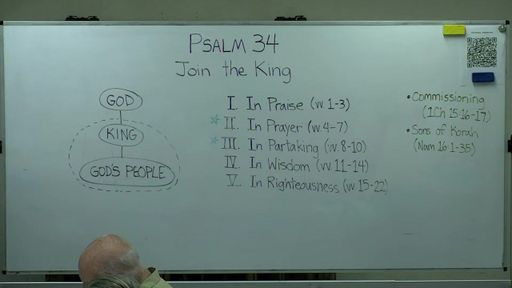 PSALM 34
Join the King
GOD
KING
GOD'S PEOPLE
I. In Praise (vv 1-3)
* II. In Prayer (vv 4-7)
* III. In Partaking (vv 8-10)
IV. In Wisdom (vv 11-14)
V. In Righteousness (vv 15-22)
• Commissioning
(1Ch 15:16-17)
• Sons of Korah
(Num 16:1-35)